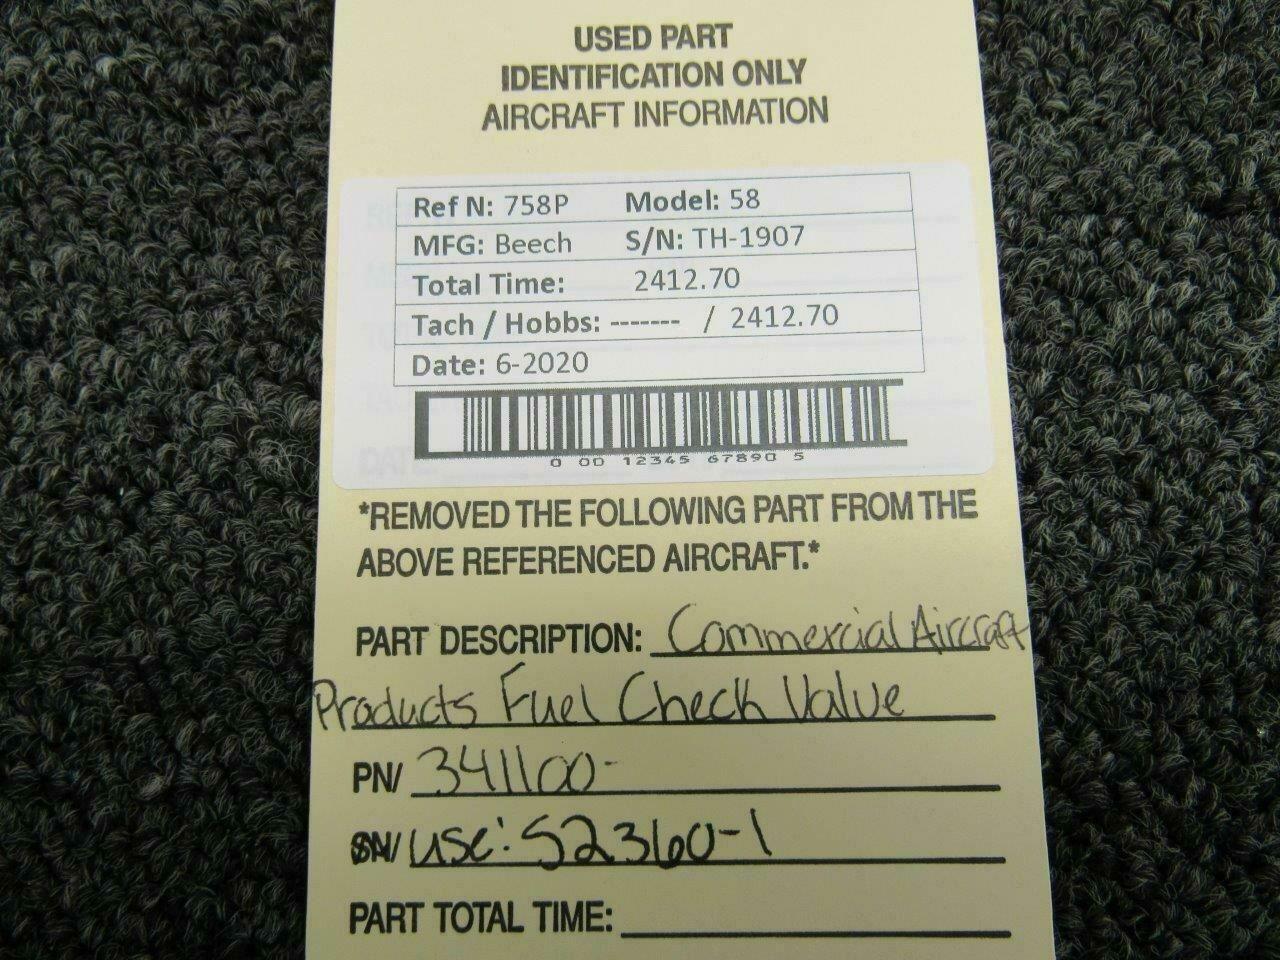 USED PART
IDENTIFICATION ONLY
AIRCRAFT INFORMATION
Ref N: 758P Model: 58
MFG: Beech S/N: TH-1907
Total Time: 2412.70
Tach / Hobbs: ------- / 2412.70
Date: 6-2020
0 00 12345 67890 5
*REMOVED THE FOLLOWING PART FROM THE
ABOVE REFERENCED AIRCRAFT.*
PART DESCRIPTION: Commercial Aircraft
Products Fuel Check Valve
PN/ 341100-
SN/ use: S2360-1
PART TOTAL TIME: